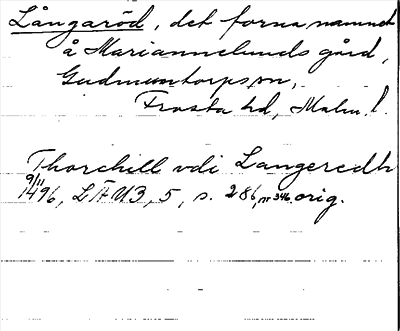 Långaröd, det forna namnet
å Mariannelunds gård,
Gudmuntorps sn,
Frosta hd, Malm. l.
Thorchill vdi Langeredh
9/11 1496, LÄU3, 5, s. 286, nr 346, orig.